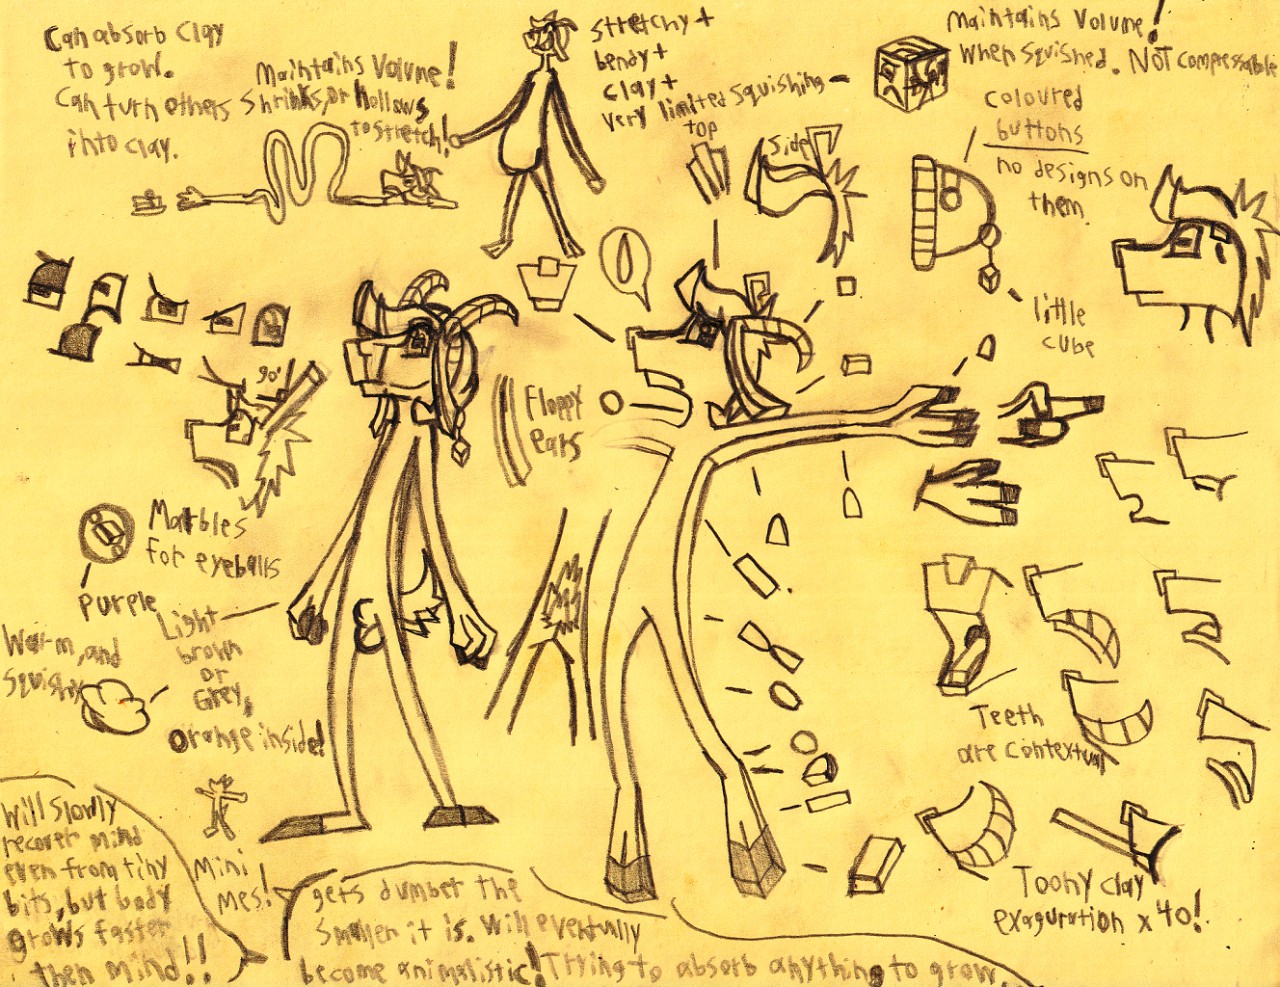 Can absorb clay
to grow.
Can turn others
into clay.
Maintains Volume!
Shrinks, or hollows
to stretch!
stretchy +
bendy +
clay +
very limited squishing -
top
side
Maintains Volume!
When squished. Not compressable
coloured
buttons
no designs on
them
little
cube
90°
Floppy
ears
Marbles
for eyeballs
purple
Light
brown
or
Grey,
orange inside!
Warm, and
squishy
Teeth
are contextual
Toony clay
exaguration x 40!
Mini
mes!
Will slowly
recover mind
even from tiny
bits, but body
grows faster
then mind!!
gets dumber the
smaller it is. Will eventually
become animalistic! Trying to absorb anything to grow.